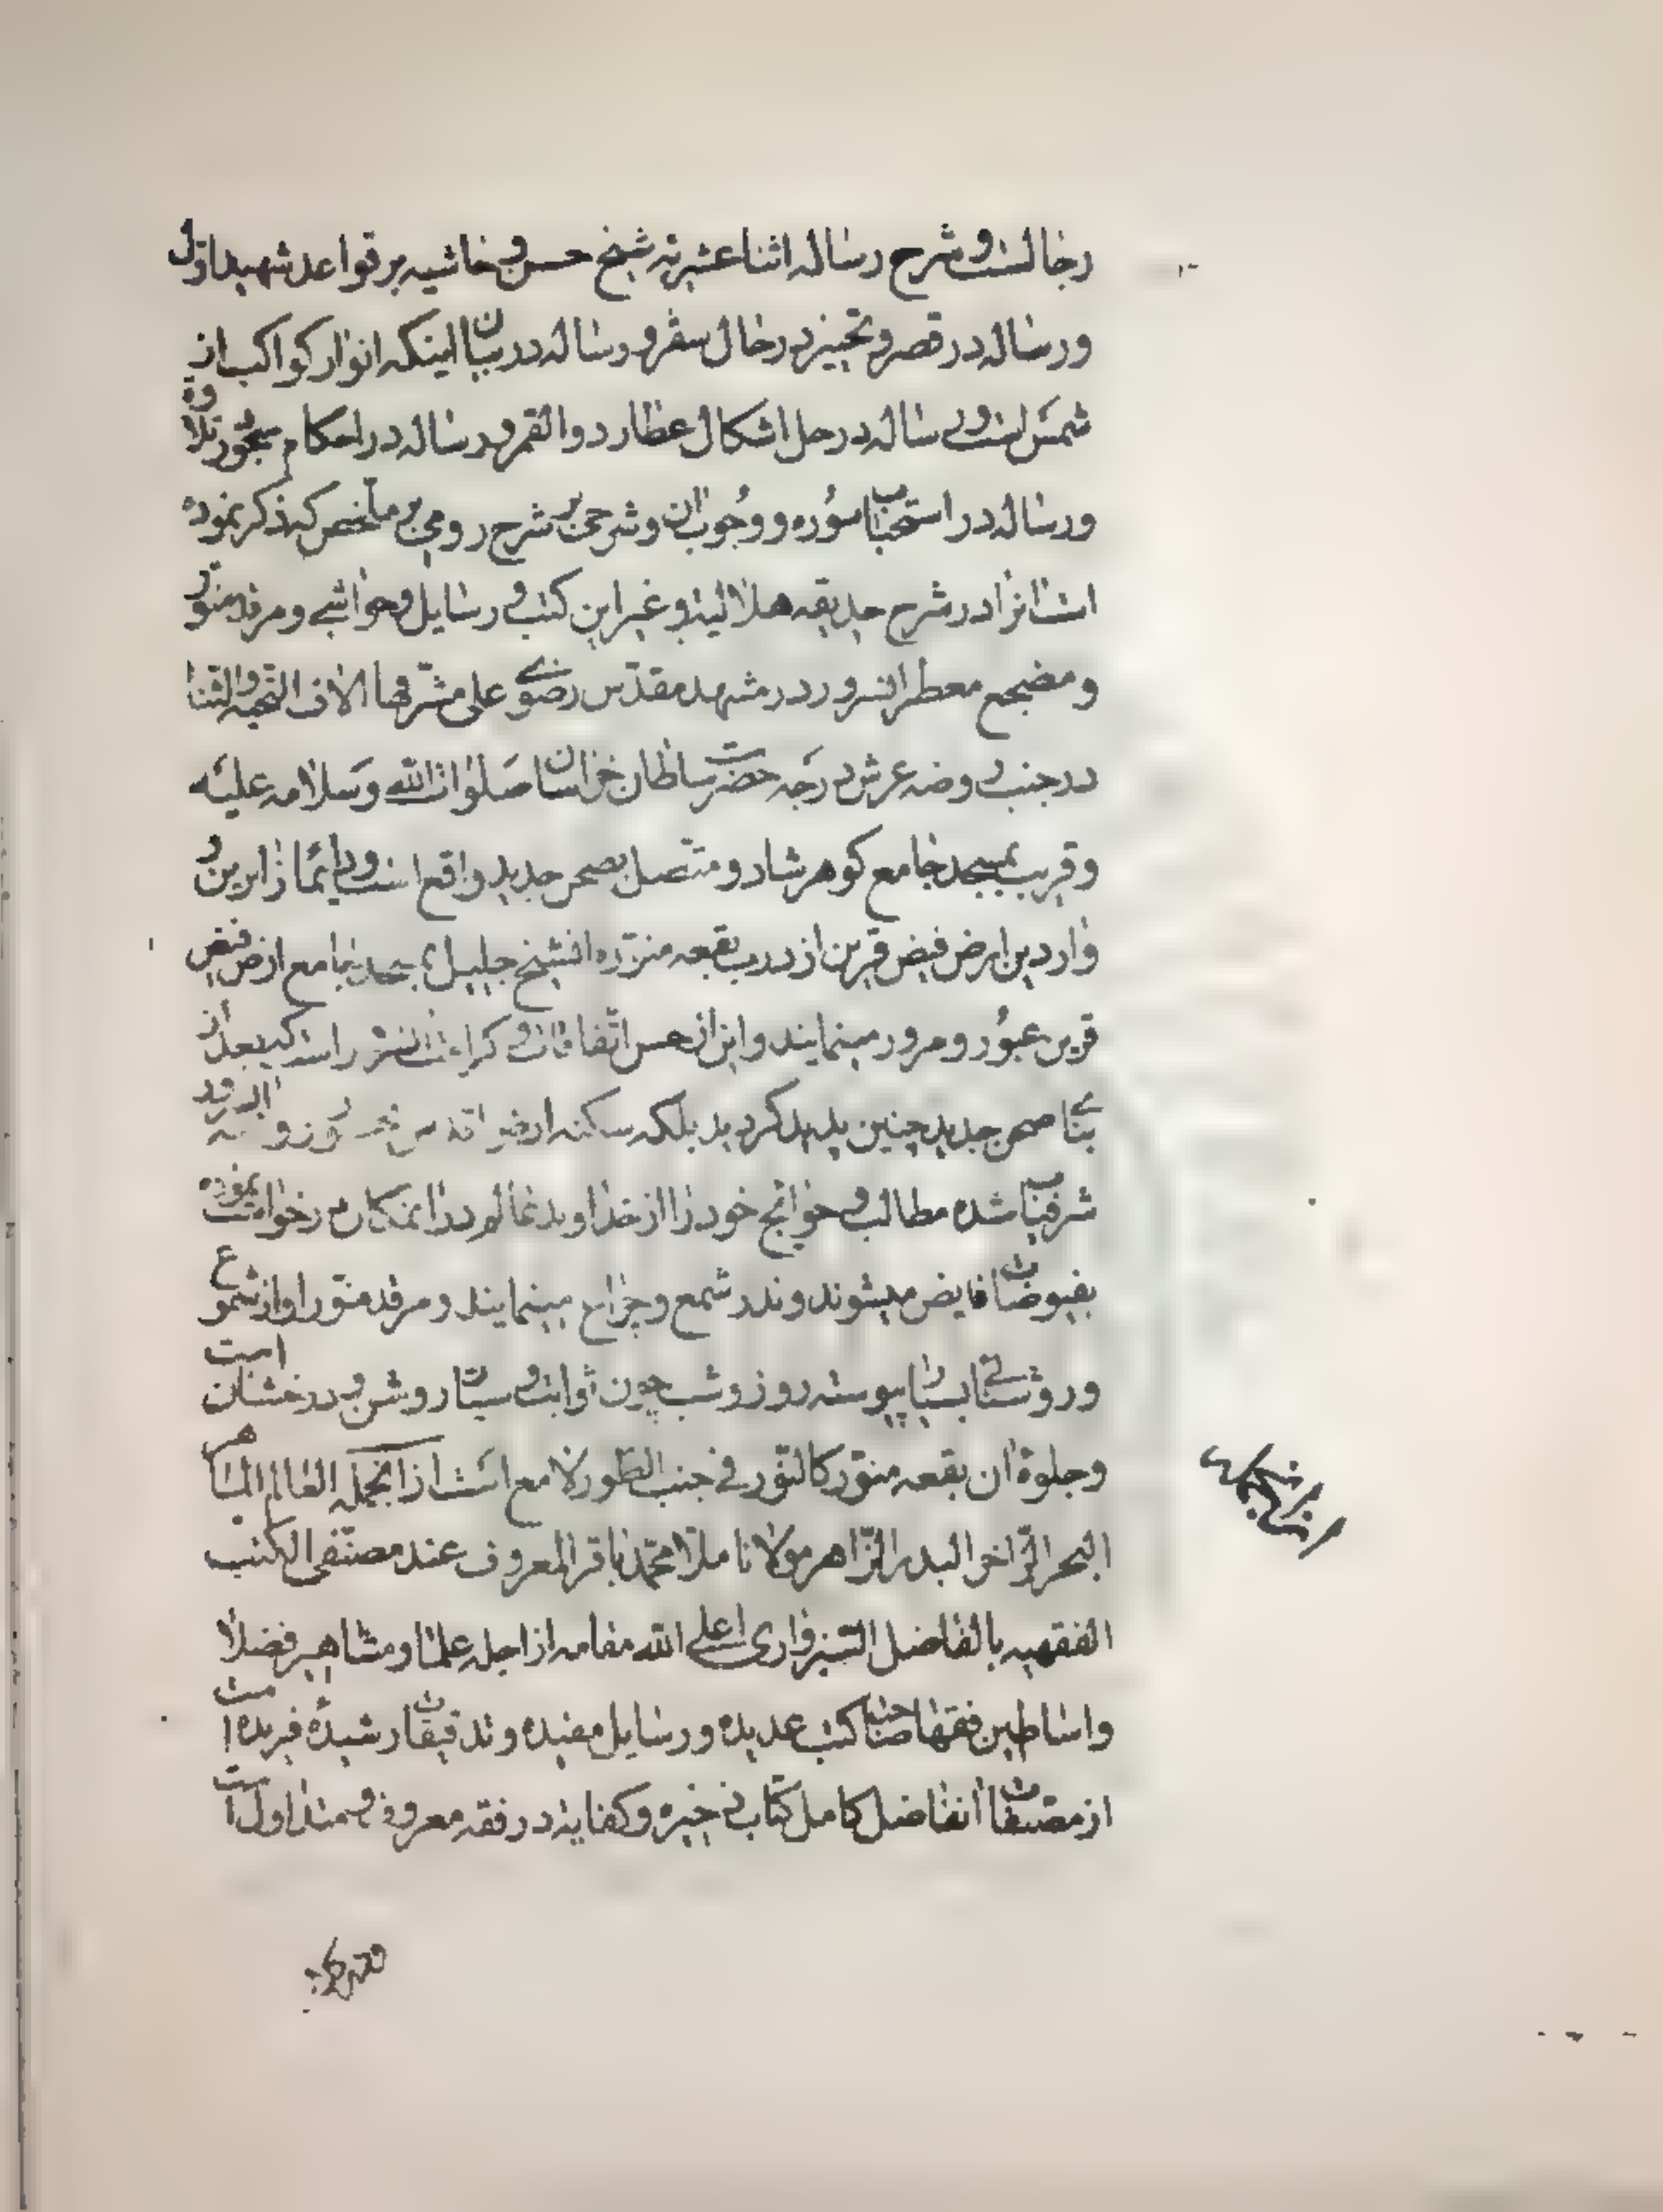 رجالست و شرح رساله اثنا عشریه شیخ حسن و حاشیه بر قواعد شهید اول
و رساله در قصر و تخییر در حال سفر و رساله در بیان اینکه انوار کواکب از
شمس است و رساله در حل اشکال عطارد و القمر و رساله در احکام سجود تلاوة
و رساله در استحباب سوره و وجوب ان و شرحی بر شرح رومی بر ملخص که ذکر نموده
است انرا در شرح حدیقه هلالیه و غیر این کتب و رسایل و حواشی و مرقد منور
و مضجع معطر انسرور در مشهد مقدس رضوی علی مشرفها الاف التحیه و الثنا
در جنب روضه عرش درجه حضرت سلطان خراسان صلوات الله و سلامه علیه
و قریب بمسجد جامع کوهرشاد و متصل بصحن جدید واقع است و دائما زایرین و
واردین ارض فیض قرین از درب بقعه منوره انشیخ جلیل بمسجد جامع ارض فیض
قرین عبور و مرور مینمایند و این از حسن اتفاقات و کرامات انسرور است که بعد از
بنای صحن جدید چنین پدید کردید بلکه سکنه ارض اقدس روز و
شرفیاب شده مطالب و حوائج خود را از خداوند عالم در انمکان درخواست نموده
بفیوضات فایض میشوند و نذر شمع و چراغ مینمایند و مرقد منور او از شموع
و روشنائی بسیار پیوسته روز و شب چون ثوابت و سیار روشن و درخشان است
و جلوة ان بقعه منور کالنور فی جنب الطور لامع است از انجمله العالم الماهر
البحر الزاخر البدر الزاهر مولانا ملا محمد باقر المعروف عند مصنفی الکتب
الفقهیه بالفاضل السبزواری اعلی الله مقامه از اجله علما و مشاهیر فضلا
و اساطین فقها صاحب کتب عدیده و رسایل مفیده و تدقیقات رشیده فریده است
از مصنفات انفاضل کامل کتاب ذخیره و کفایه در فقه معروف و متداول است